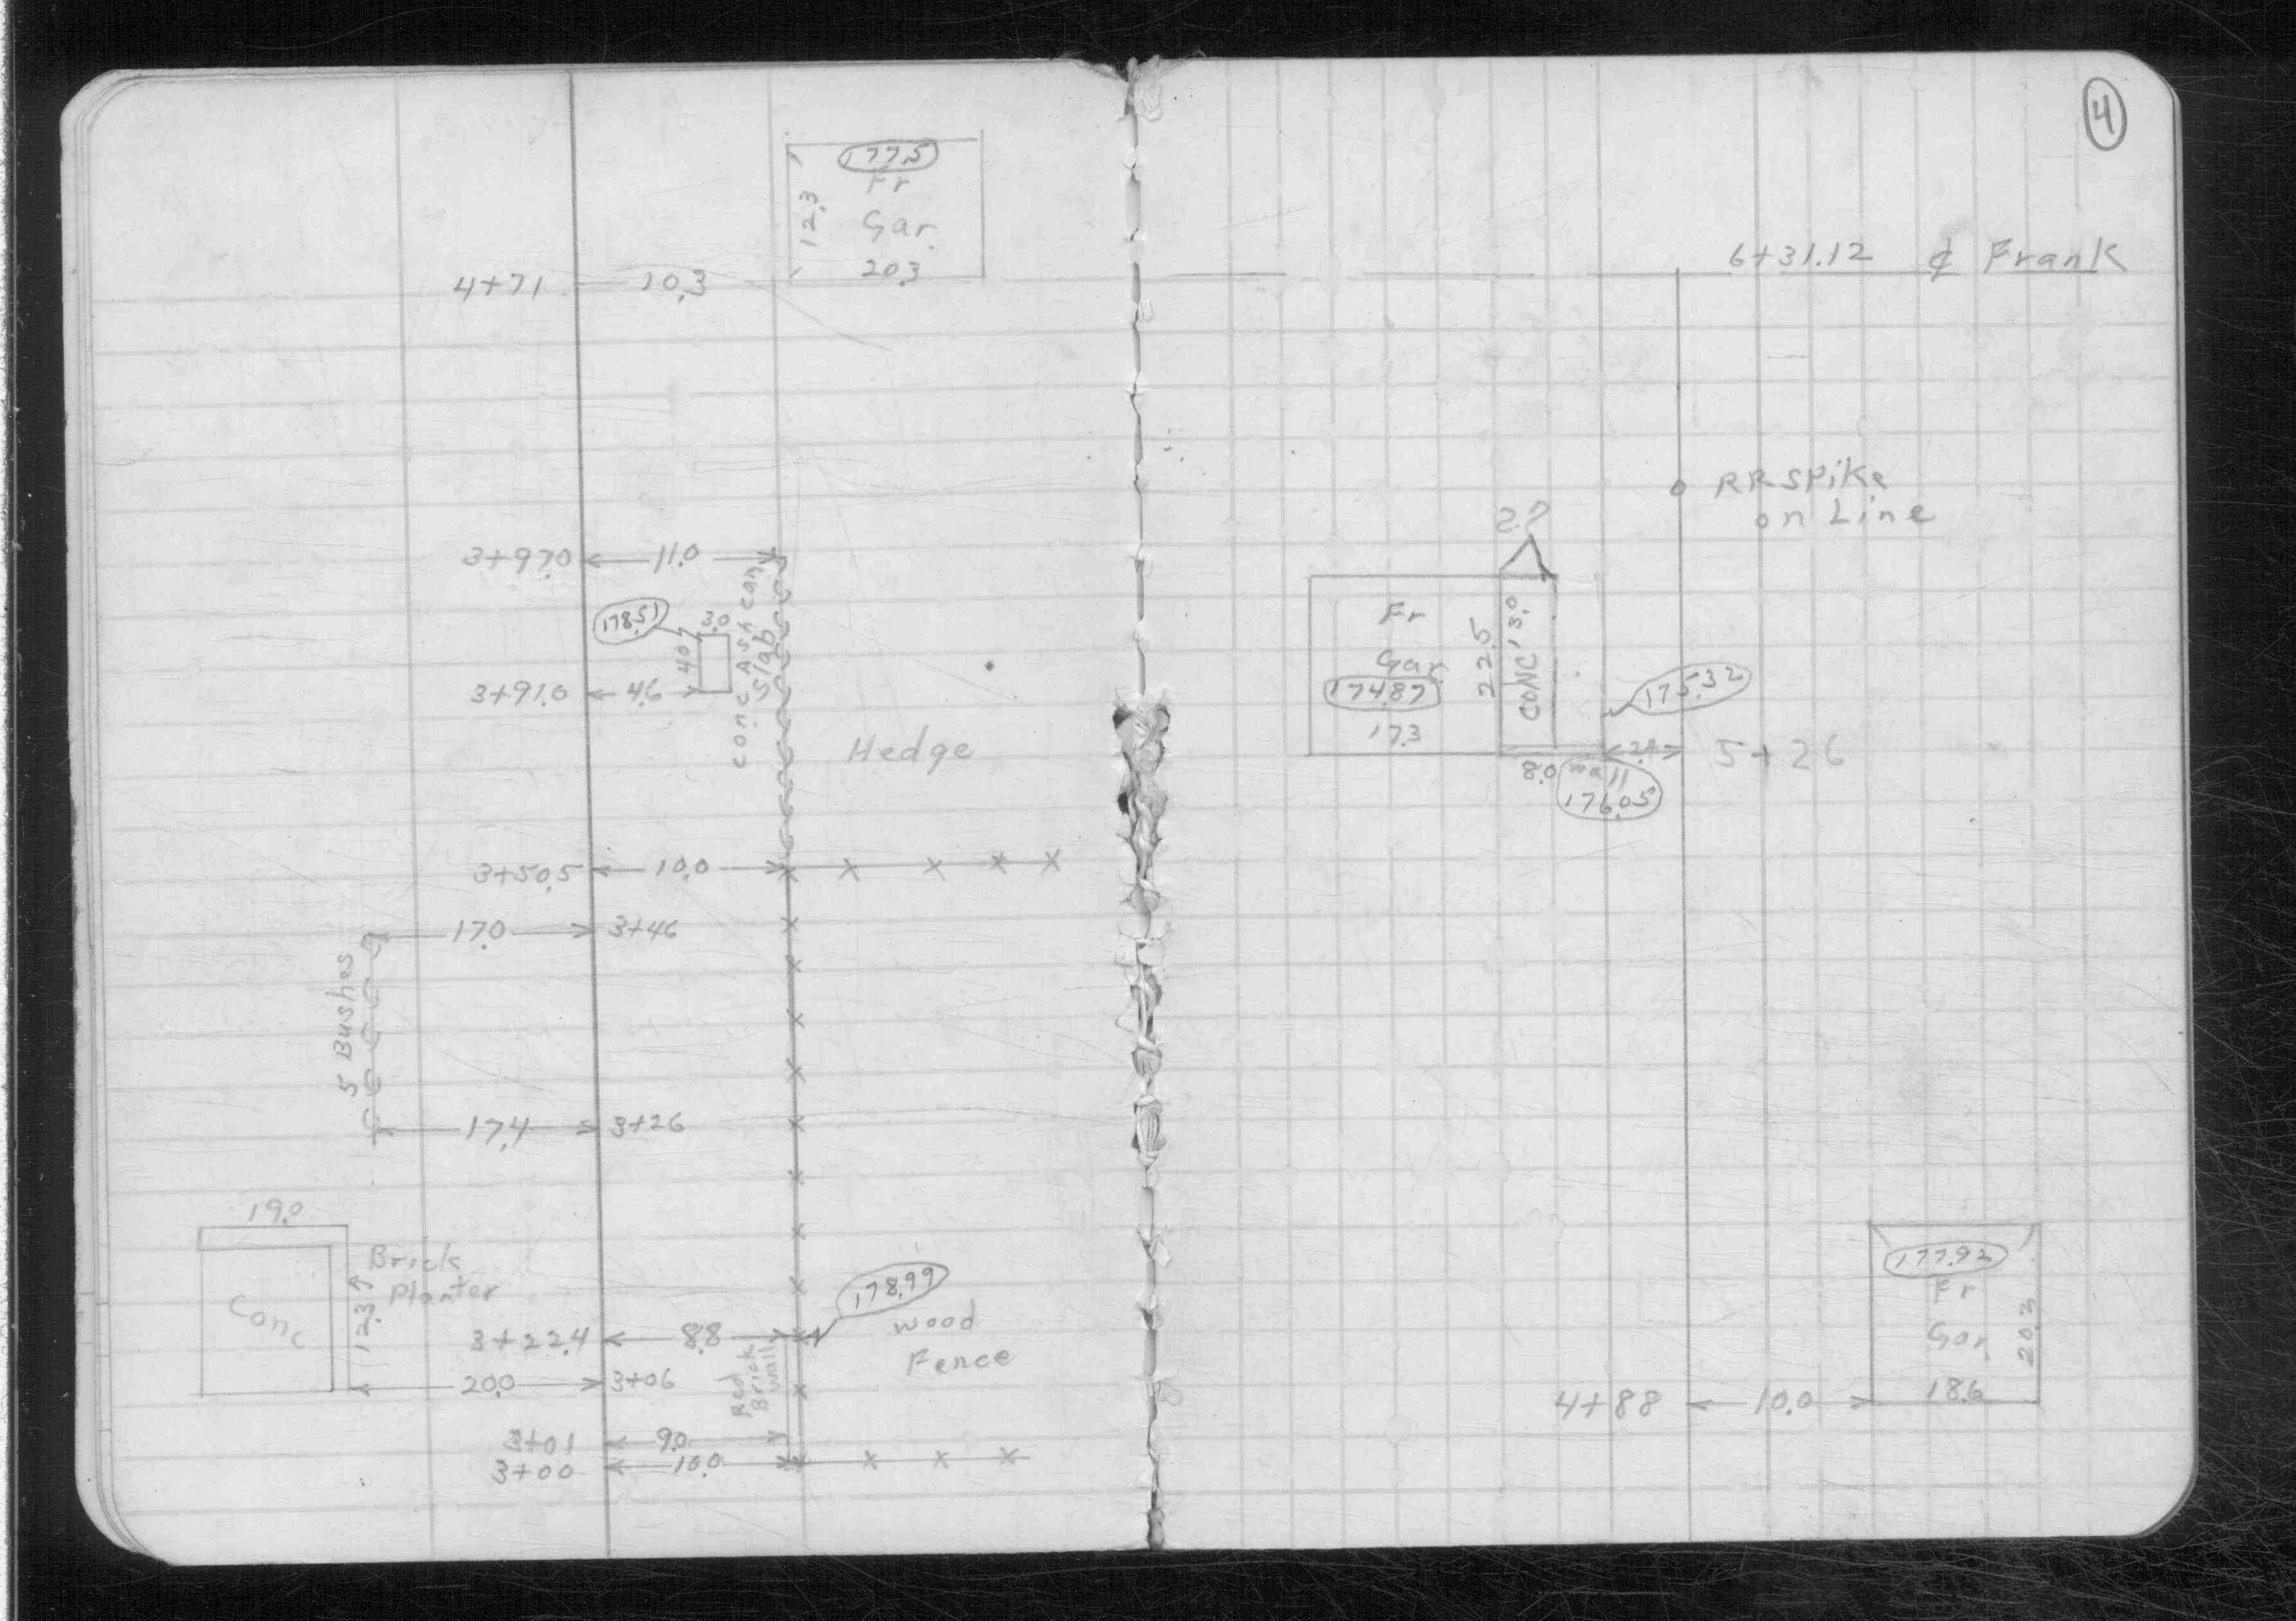 177.5
Fr
Gar.
12.3
20.3
4+71 10.3
3+97.0 11.0
178.51
3.0
4.0
conc Ash can
Slab
3+91.0 4.6
Hedge
3+50.5 10.0
17.0 3+46
5 Bushes
17.4 3+26
19.0
Brick
Planter
Conc
12.3
178.99
wood
Fence
3+22.4 8.8
Red
Brick
wall
20.0 3+06
3+01 9.0
3+00 10.0
4
6+31.12 ₵ Frank
RR Spike
on Line
Fr
Gar.
174.87
17.3
22.5
CONC 13.0
175.32
2.4 5+26
8.0 wall
176.05
177.92
Fr
Gar.
20.3
18.6
4+88 10.0